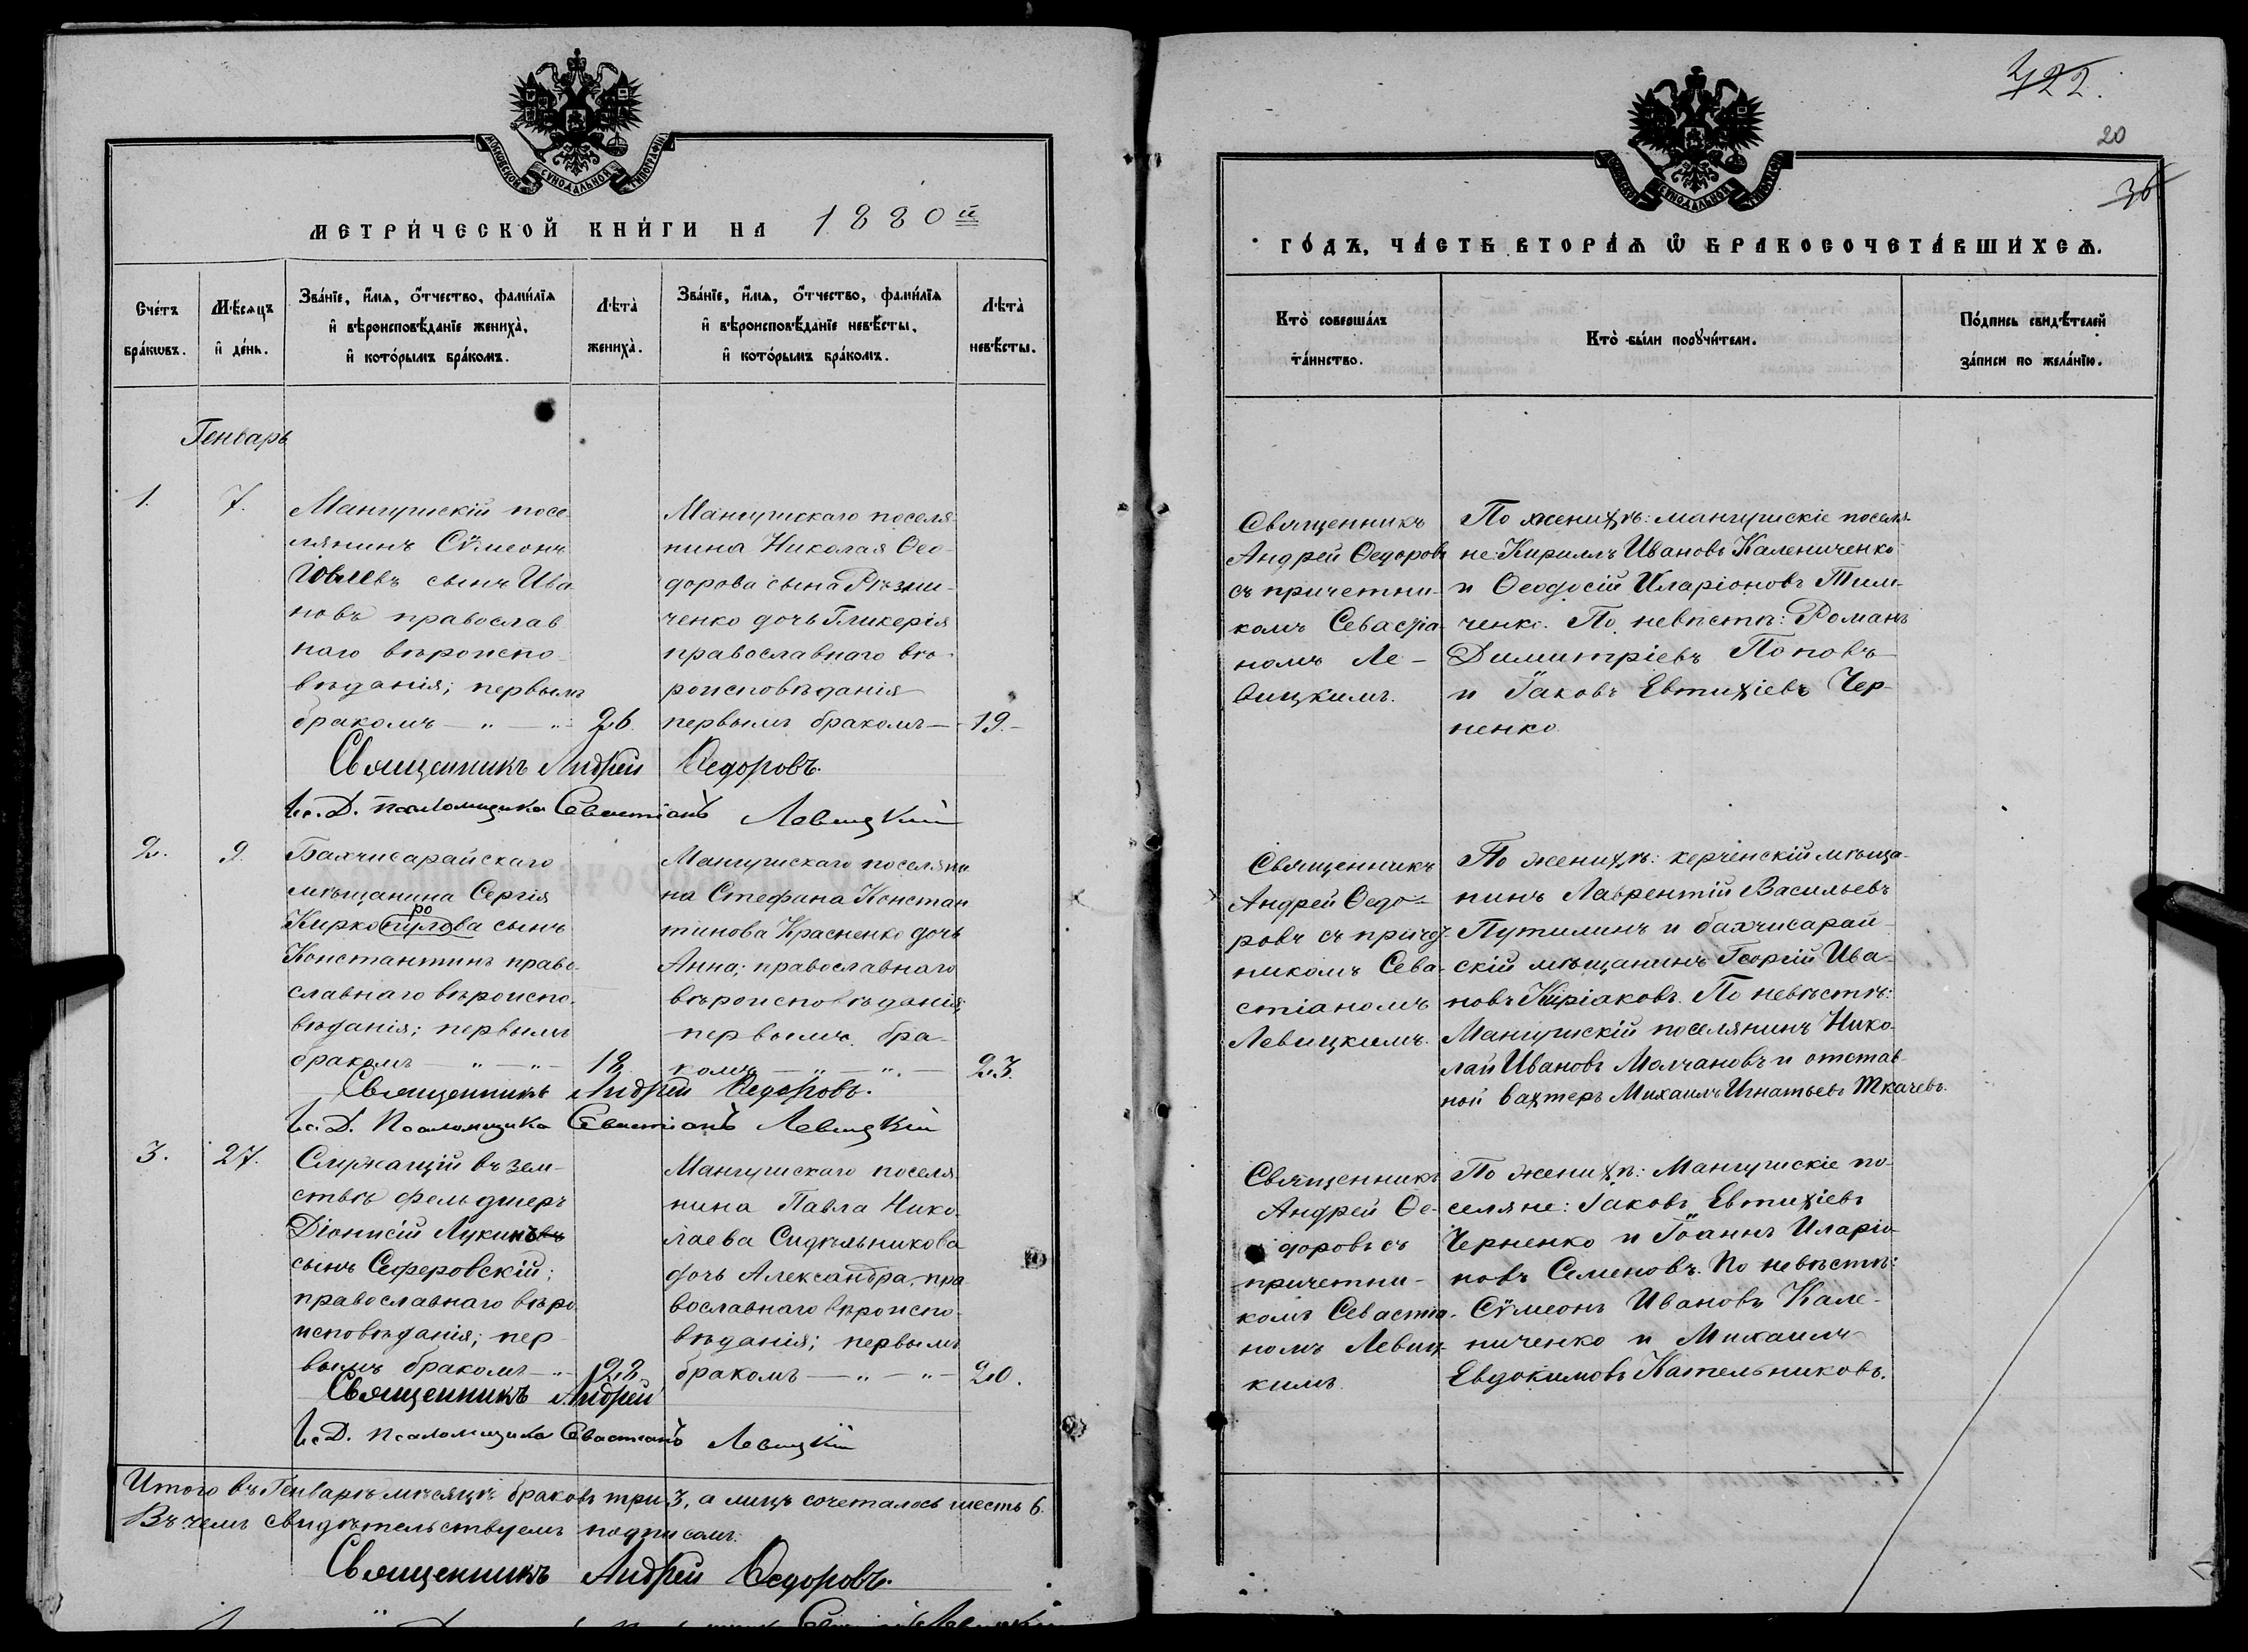 МОСКОВСКОЙ СУНОДАЛЬНОЙ ТИПОГРАФІИ
МЕТРИ́ЧЕСКОЙ КНИ́ГИ НА 1880й
Сче́тъ бра́кωвъ.
Мѣ́сяцъ и҆ де́нь.
Зва́нїе, и҆́мѧ, ѻ҆́тчество, фами́лїѧ
и҆ вѣроисповѣ́данїе жениха̀,
и҆ кото́рымъ бра́комъ.
Лѣта̀ жениха̀.
Зва́нїе, и҆́мѧ, ѻ҆́тчество, фами́лїѧ
и҆ вѣроисповѣ́данїе невѣ́сты,
и҆ кото́рымъ бра́комъ.
Лѣта̀ невѣ́сты.
Генварь
1.
7.
Мангушскій посе-
лянинъ Сѵмеонъ
Іовлевъ сынъ Ива
новъ православ
наго вѣроиспо-
вѣданія; первымъ
бракомъ — „ — „ —
26.
Мангушскаго поселя-
нина Николая Ѳео-
дорова сына Рѣзни-
ченко дочь Гликерія
православнаго вѣ-
роисповѣданія
первымъ бракомъ —
19.
Священникъ Андрей Ѳедоровъ.
Ис. Д. Псаломщика Севастіанъ Левицкій
2.
9.
Бахчисарайскаго
мѣщанина Сергія
ро
Киркопулова сынъ
Константинъ право-
славнаго вѣроиспо-
вѣданія; первымъ
бракомъ — „ — „ —
18.
Мангушскаго поселяни
на Стефана Констан
тинова Красненко дочь
Анна; православнаго
вѣроисповѣданія;
первымъ бра-
комъ — „ — „ —
23.
Священникъ Андрей Ѳедоровъ.
Ис. Д. Псаломщика Севастіанъ Левицкій
3.
27.
Служащій въ зем-
ствѣ фельдшеръ
Діонисій Лукинъ
сынъ Сеферовскій;
православнаго вѣро
исповѣданія; пер-
вымъ бракомъ — „ —
28.
Мангушскаго поселя
нина Павла Нико-
лаева Сидѣльникова
дочь Александра, пра
вославнаго вѣроиспо-
вѣданія; первымъ
бракомъ — „ — „ —
20.
Священникъ Андрей
Ис. Д. Псаломщика Севастіанъ Левицкій
Итого въ Генварѣ мѣсяцѣ браковъ три 3, а лицъ сочеталось шесть 6.
Въ чемъ свидѣтельствуемъ подписомъ:
Священникъ Андрей Ѳедоровъ.
422.
20
36
МОСКОВСКОЙ СУНОДАЛЬНОЙ ТИПОГРАФІИ
ГО́ДЪ, ЧА́СТЬ ВТОРА́Ѧ Ѽ БРАКОСОЧЕТА́ВШИХСѦ.
Кто̀ соверша́лъ та́инство.
Кто̀ бы́ли порꙋчи́тели.
По́дпись свидѣ́телей за́писи по жела́нїю.
Священникъ
Андрей Ѳедоровъ
съ причетни-
комъ Севастіа-
номъ Ле-
вицкимъ.
По женихѣ: мангушскіе поселя-
не: Кириллъ Ивановъ Калениченко
и Ѳеодосій Иларіоновъ Тим-
ченко. По невѣстѣ: Романъ
Димитріевъ Поповъ
и Іаковъ Евтихіевъ Чер-
ненко
Священникъ
Андрей Ѳедо-
ровъ съ причет-
никомъ Сева-
стіаномъ
Левицкимъ.
По женихѣ: керченскій мѣща-
нинъ Лаврентій Васильевъ
Путилинъ и бахчисарай-
скій мѣщанинъ Георгій Ива-
новъ Киріаковъ. По невѣстѣ:
Мангушскій поселянинъ Нико-
лай Ивановъ Молчановъ и отстав-
ной вахтеръ Михаилъ Игнатьевъ Ткачевъ.
Священникъ
Андрей Ѳе-
доровъ съ
причетни-
комъ Севастіа-
номъ Левиц-
кимъ.
По женихѣ: Мангушскіе по-
селяне: Іаковъ Евтихіевъ
Черненко и Іоаннъ Иларіо-
новъ Семеновъ. По невѣстѣ:
Сѵмеонъ Ивановъ Кале-
ниченко и Михаилъ
Евдокимовъ Кательниковъ.